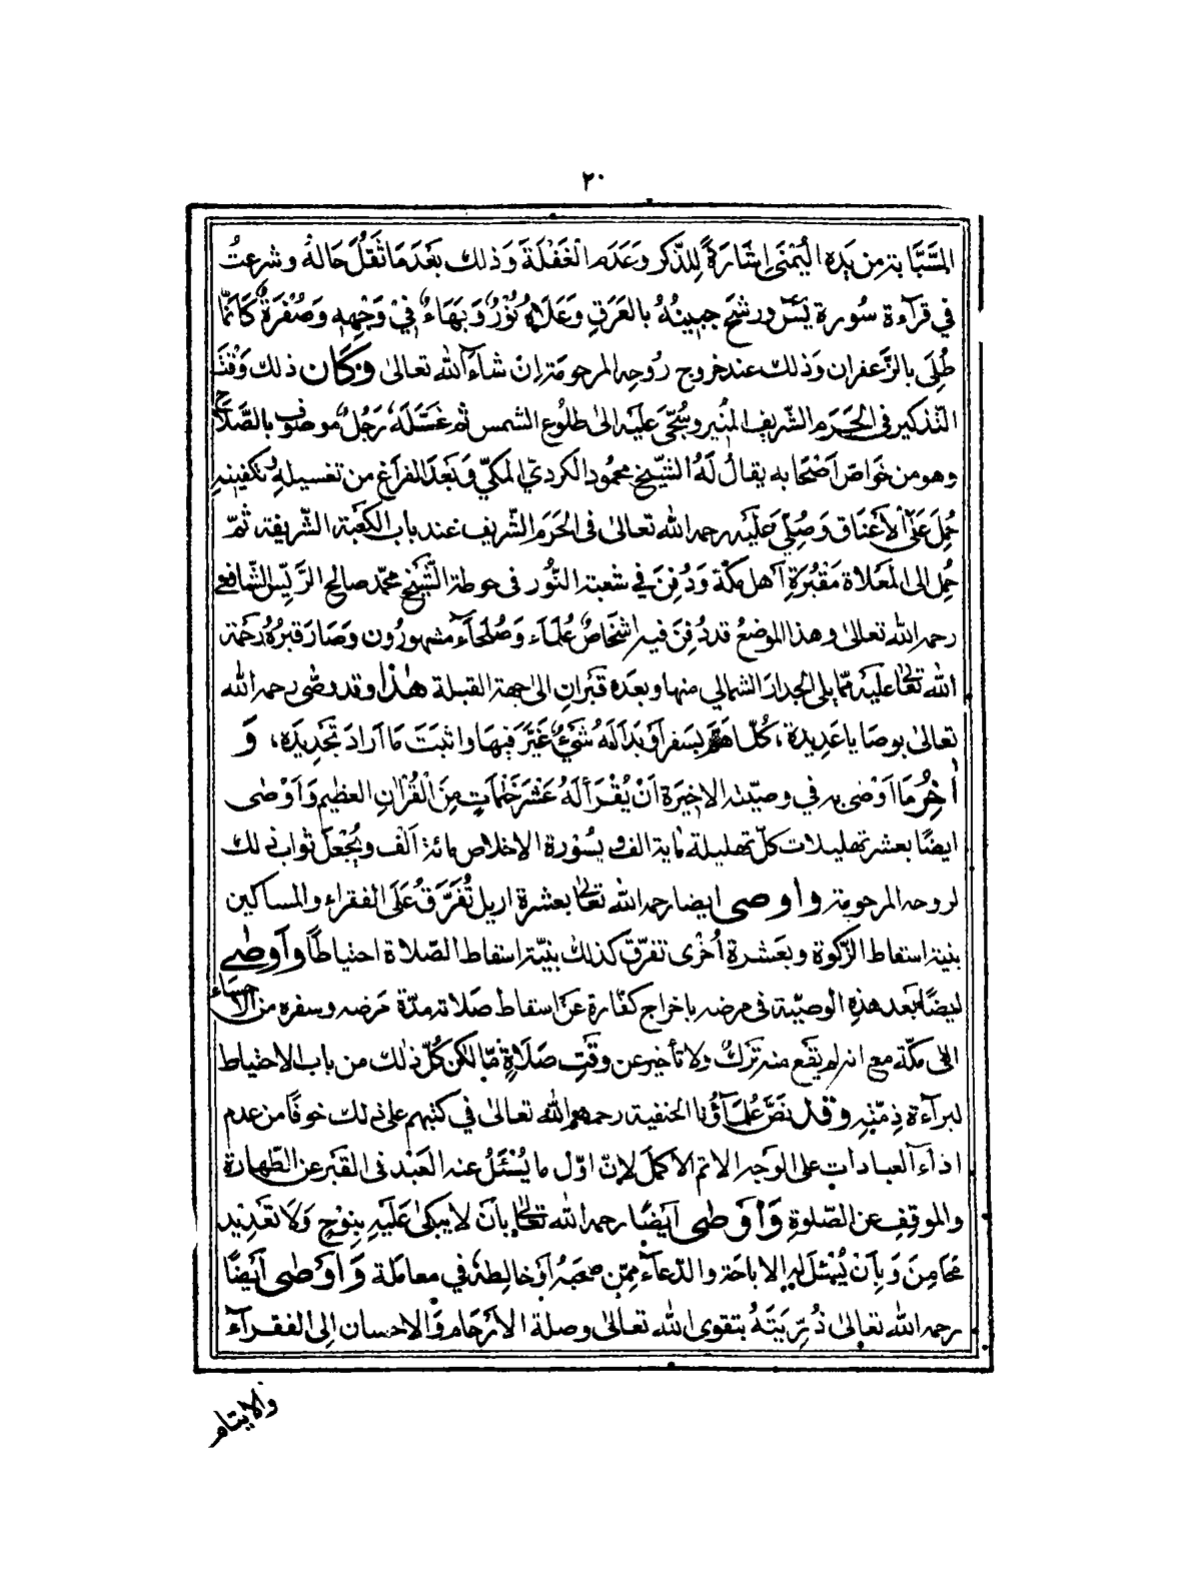 ٢٠
السَّبَّابة من يَدِه اليُمْنَى اِشَارَةً لِلذّكر وعَدَم الْغَفْلَة وَذلك بَعْدَ مَا ثَقُلَ حَالهُ وشرعتُ
في قرآءة سُورة يٰسٓ ورشَحَ جبينُهُ بالعَرَق وعَلَاهُ نُوْرٌ وَبَهَاءٌ فِيْ وَجْهِهِ وَصُفْرَةٌ كَانَّمَا
طُلِيَ بالزّعفران وَذلك عند خروج رُوحِه المرحومَة اِنْ شاءَ اللّٰه تعالىٰ وَكَان ذلك وَقْتَ
التذكير في الحَرَم الشّريف المُنير وسُجّيَ عليَه الىٰ طلُوع الشمس ثم غسَّلَه رَجُلٌ موصُوف بالصَّلَاح
وهو من خوَاصّ اَصْحَابه يقالُ لَهُ الشّيخ محمود الكردىّ المكىّ وَبَعْدَ الفراغ من تغسيلهِ وتكفينِهِ
حُمِلَ عَلىٰ الْاَعْنَاق وَصُلِّيَ عَليَه رحمه اللّٰه تعالىٰ في الحَرَم الشّريف عند باب الكَعْبَة الشّريفة ثُمّ
حُمِل الى المَعْلاة مَقْبُرَةِ اَهل مكّة وَدُفِنَ في شعبة النّور في حوطة الشّيخ محمّد صالح الرّيّس الشّافعي
رحمه اللّٰه تعالىٰ وهذا الموضعُ قد دُفِنَ فيه اشخَاصٌ عُلمَاء وَصُلحَآء مشهورُون وَصَارَ قبرُهُ رَحمَة
اللّٰه تعَالىٰ عليَه ممّا يلي الجدارَ الشمالي منها وبعدَه قبْرَانِ الىٰ جهة القبلة هٰذا وقد وصّى رحمه اللّٰه
تعالىٰ بوصَايا عَدِيدة، كُلّما هَمَّ بسَفر اَوْ بَدَا لَهُ شَيْءٌ غَيَّرَ فيْهَا واثبَتَ مَا اَرَادَ تَجْدِيْدَه، وَ
اٰخِرُ مَا اَوْصٰى به في وصيّته الاخِيرَة اَنْ يُقْرَأَ لَهُ عَشْرَ خَتَمَاتٍ مِنَ الْقُرْاٰنِ العظيم وَاَوْصٰى
ايضًا بعشر تهليلات كلّ تهليلة مَاية الف وبسُوْرة الاخلاص مائة اَلْف ويُجْعَلَ ثواب ذلك
لروحه المرحومة واوصى ايضا رحمه اللّٰه تعَالىٰ بعشرة اريل تُفَرَّقُ عَلَى الفقراء والمساكين
بنية اسقاط الزّكوة وبعَشرة اُخْرٰى تفرّق كذلك بنيّة اسقاط الصّلاة احتياطًا واَوصٰى
ايضًا بَعد هذهِ الوصيّة في مرضه باخراج كفّارة عَنْ اسقاط صَلاته مدّة مَرَضه وسفره من الاحساء
الىٰ مكّة مع انه لم يقَع منه تَركٌ ولا تأخير عن وقْتِ صَلَاةٍ مّا لٰكن كُلّ ذٰلك من باب الاحتياط
لبرآءة ذِمّتِه وَقد نصَّ عُلمَآؤُنا الحنفية رحمهم اللّٰه تعالىٰ في كتبهم على ذلك خوفًا من عدم
اداء العبادات على الوَجه الاتم الاكمَل لانّ اوّل ما يُسْئَلُ عنه العَبْد فى القبْر عن الطّهارة
والموقِف عن الصّلوةِ وَاَوْصٰى ايَضًا رحمه اللّٰه تعَالىٰ بأنْ لا يبكىٰ عَلَيهِ بِنوْحٍ وَلَا تَعْدِيْد
مَحَامِنَ وَبِاَن يُسْئلَ لهِ الاباحَة والدّعاءُ مِمّن صَحِبَهُ اَوْ خالطَهُ في معامَلة وَاَوْصٰى اَيْضًا
رحمه اللّٰه تعَالىٰ ذُرّيَتَهُ بتقوى اللّٰه تعَالىٰ وصلة الاَرْحَام وَالاحسان اِلى الفقرآء
والايتام